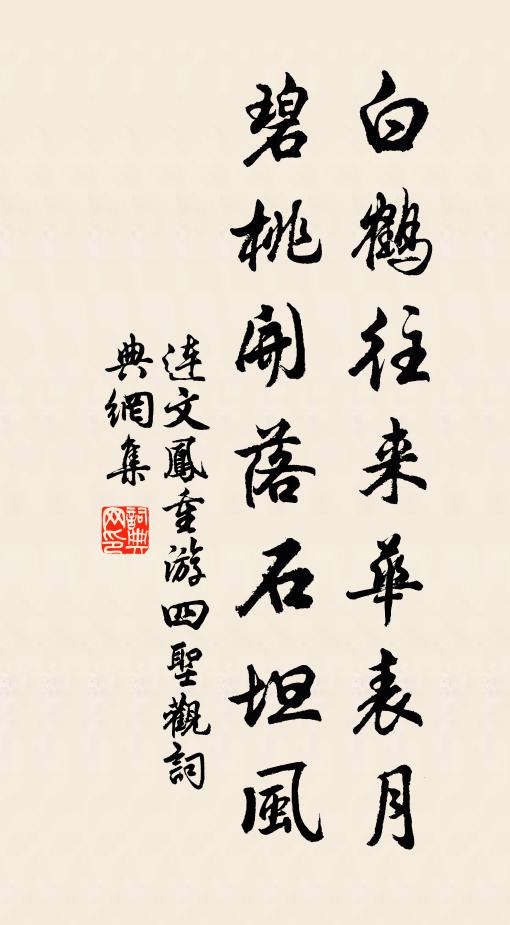 白鶴往来華表月
碧桃開落石坦風
連文鳳重游四聖觀詞
典網集
詞典
网印